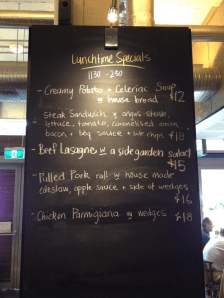 Lunchtime Specials
11:30 - 2:30
- Creamy Potato + Celeriac Soup
w house bread $12
Steak Sandwich, angus steak,
lettuce, tomato, caramelised onion,
bacon + bbq sauce + side chips $18
- Beef Lasagne w a side garden salad
$15
- Pulled Pork roll w house made
coleslaw, apple sauce + side of wedges
$16
- Chicken Parmigiana w wedges $18